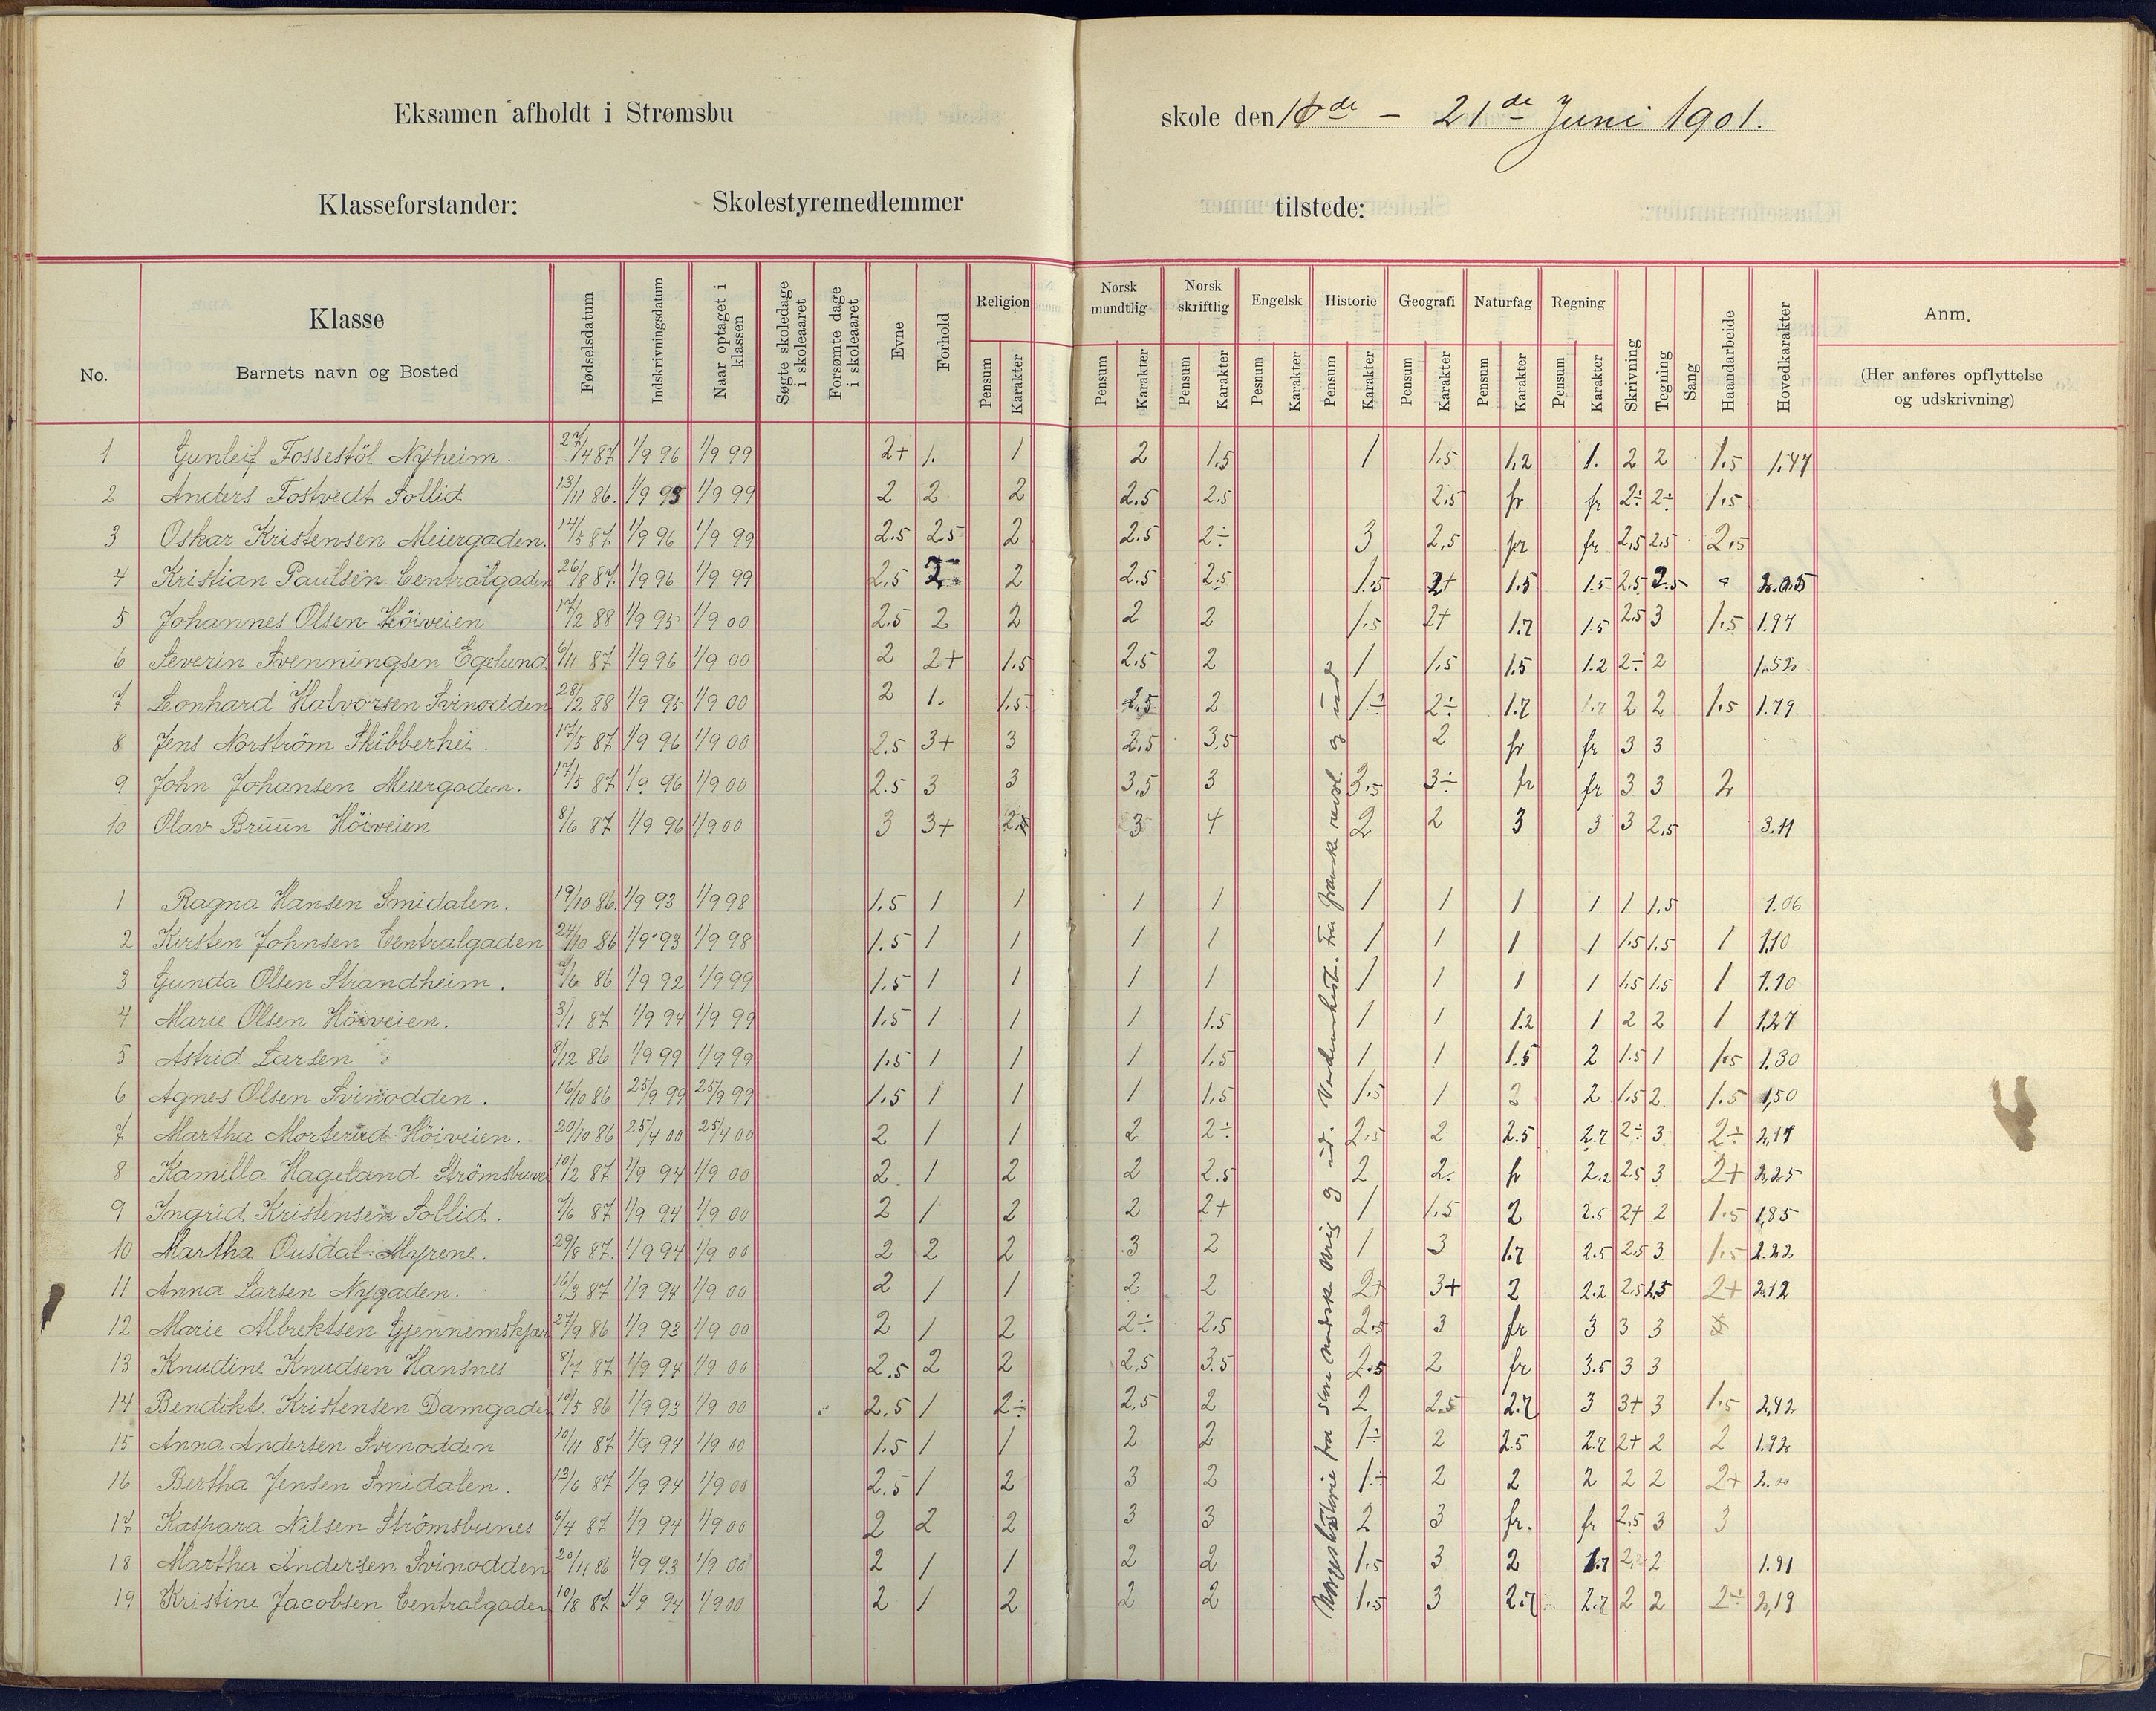 Eksamen afholdt i Strømsbu skole den 1 de – 21de Juni 1901.
Klasseforstander: Skolestyremedlemmer tilstede:
No. Klasse Barnets navn og Bosted Fødselsdatum Indskrivningsdatum Naar optaget i klassen Søgte skoledage i skoleaaret Forsømte dage i skoleaaret Evne Forhold Religion Pensum Karakter Norsk mundtlig Pensum Karakter Norsk skriftlig Pensum Karakter Engelsk Pesnum Karakter Historie Pensum Karakter Geografi Pensum Karakter Naturfag Pensum Karakter Regning Pensum Karakter Skrivning Tegning Sang Haandarbeide Hovedkarakter Anm. (Her anføres opflyttelse og udskrivning)
1 Gunleif Fossestöl Nyheim. 27/4 87 1/9 96 1/9 99 2+ 1. 1 2 1.5 1 1.5 1.2 1. 2 2 1.5 1.47
2 Anders Tostvedt Sollid 13/11 86. 1/9 93 1/9 99 2 2 2 2.5 2.5 2.5 fr fr 2÷ 2÷ 1.5
3 Oskar Kristensen Meiergaden. 14/5 87 1/9 96 1/9 99 2.5 2.5 2 2.5 2÷ 3 2.5 fr fr 2.5 2.5 2.5
4 Kristian Paulsen Centralgaden 26/8 87 1/9 96 1/9 99 2.5 2 2 2.5 2.5 1.5 2+ 1.5 1.5 2.5 2.5 2.05
5 Johannes Olsen Höiveien 17/2 88 1/9 95 1/9 00 2.5 2 2 2 2 1.5 2+ 1.7 1.5 2.5 3 1.5 1.97
6 Severin Svenningsen Egelund 6/11 87 1/9 96 1/9 00 2 2+ 1.5 2.5 2 1 1.5 1.5 1.2 2÷ 2 1.52
7 Leonhard Halvorsen Svinodden 28/2 88 1/9 95 1/9 00 2 1. 1.5 2.5 2 1÷ 2÷ 1.7 1.7 2 2 1.5 1.79
8 Jens Norström Skibberhei. 17/5 87 1/9 96 1/9 00 2.5 3+ 3 2.5 3.5 2 fr fr 3 3
9 John Johansen Meiergaden. 17/5 87 1/9 96 1/9 00 2.5 3 3 3,5 3 3.5 3÷ fr fr 3 3 2
10 Olav Bruun Höiveien 8/6 87 1/9 96 1/9 00 3 3+ 2.5 3 4 2 2 3 3 3 2.5 3.11
1 Ragna Hansen Smidalen. 19/10 86. 1/9 93 1/9 98 1.5 1 1 1 1 1 1 1 1 1 1.5 1.06
2 Kirsten Johnsen Centralgaden 24/10 86 1/9 93 1/9 98 1.5 1 1 1 1 1 1 1 1 1.5 1.5 1 1.10
3 Gunda Olsen Strandheim. /6 86 1/9 92 1/9 99 1.5 1 1 1 1 1 1 1 1 1.5 1.5 1 1.10
4 Marie Olsen Höiveien. 3/1 87 1/9 94 1/9 99 1.5 1 1 1 1.5 1 1 1.2 1 2 2 1 1.27
5 Astrid Larsen 8/12 86 1/9 99 1/9 99 1.5 1 1 1 1.5 1 1 1.5 2 1.5 1 1.5 1.30
6 Agnes Olsen Svinodden. 16/10 86 25/9 99 25/9 99 1.5 1 1 1 1.5 1.5 1 2 2 1.5 2 1.5 1,50
7 Martha Morterud Höiveien. 20/10 86 25/4 00 25/4 00 2 1 1 2 2÷ 2.5 2 2.5 2.7 2÷ 3 2÷ 2,17
8 Kamilla Hageland Strömsbuvei 10/2 87 1/9 94 1/9 00 2 1 2 2 2.5 2 2. fr 2.2 2.5 3 2+ 2,25
9 Ingrid Kristensen Sollid. 7/6 87 1/9 94 1/9 00 2 1 2 2 2+ 1 1.5 2 2.5 2+ 2 1.5 1,85
10 Martha Ousdal Myrene. 29/8 87. 1/9 94 1/9 00 2 2 2 3 2 1 3 1.7 2.5 2.5 3 1.5 2.22
11 Anna Larsen Nygaden. 16/3 87 1/9 94 1/9 00 2 1 1 2 2 2+ 3+ 2 2.2 2.5 2.5 2+ 2,12
12 Marie Albrektsen Gjennemskjær 27/9 86 1/9 93 1/9 00 2 1 2 2÷ 2.5 2.5 3 fr 3 3 3
13 Knudine Knudsen Hansnes 8/7 87 1/9 94 1/9 00 2.5 2 2 2.5 3.5 2.5 2 fr 3.5 3 3
14 Bendikte Kristensen Damgaden 10/5 86 1/9 93 1/9 00 2.5 1 2÷ 2.5 2 2 2.5 2.7 3 3+ 3 1.5 2,42
15 Anna Andersen Svinodden 10/11 87 1/9 94 1/9 00 1.5 1 1 2 2 1÷ 2 2.5 2.7 2+ 2 2 1.92
16 Bertha Jensen Smidalen. 13/6 87 1/9 94 1/9 00 2.5 1 2 3 2 1÷ 2 2 2 2 2 2+ 2.00
17 Kaspara Nilsen Strömsbunes 6/4 87 1/9 94 1/9 00 2 2 2 3 3 2 3 fr. fr 2.5 3 3
18 Martha Andersen Svinodden 20/11 86 1/9 93 1/9 00 2 1 1 2 2 1.5 3 2 1.7 2 2 1.91
19 Kristine Jacobsen Centralgaden 10/8 87 1/9 94 1/9 00 2 1 2 2 2 1.5 3 2.7 2.7 2 2 2÷ 2,19
Norgeshistorie fra store nordiske krig og ud. Verdenshist. fra franske revol. og ud